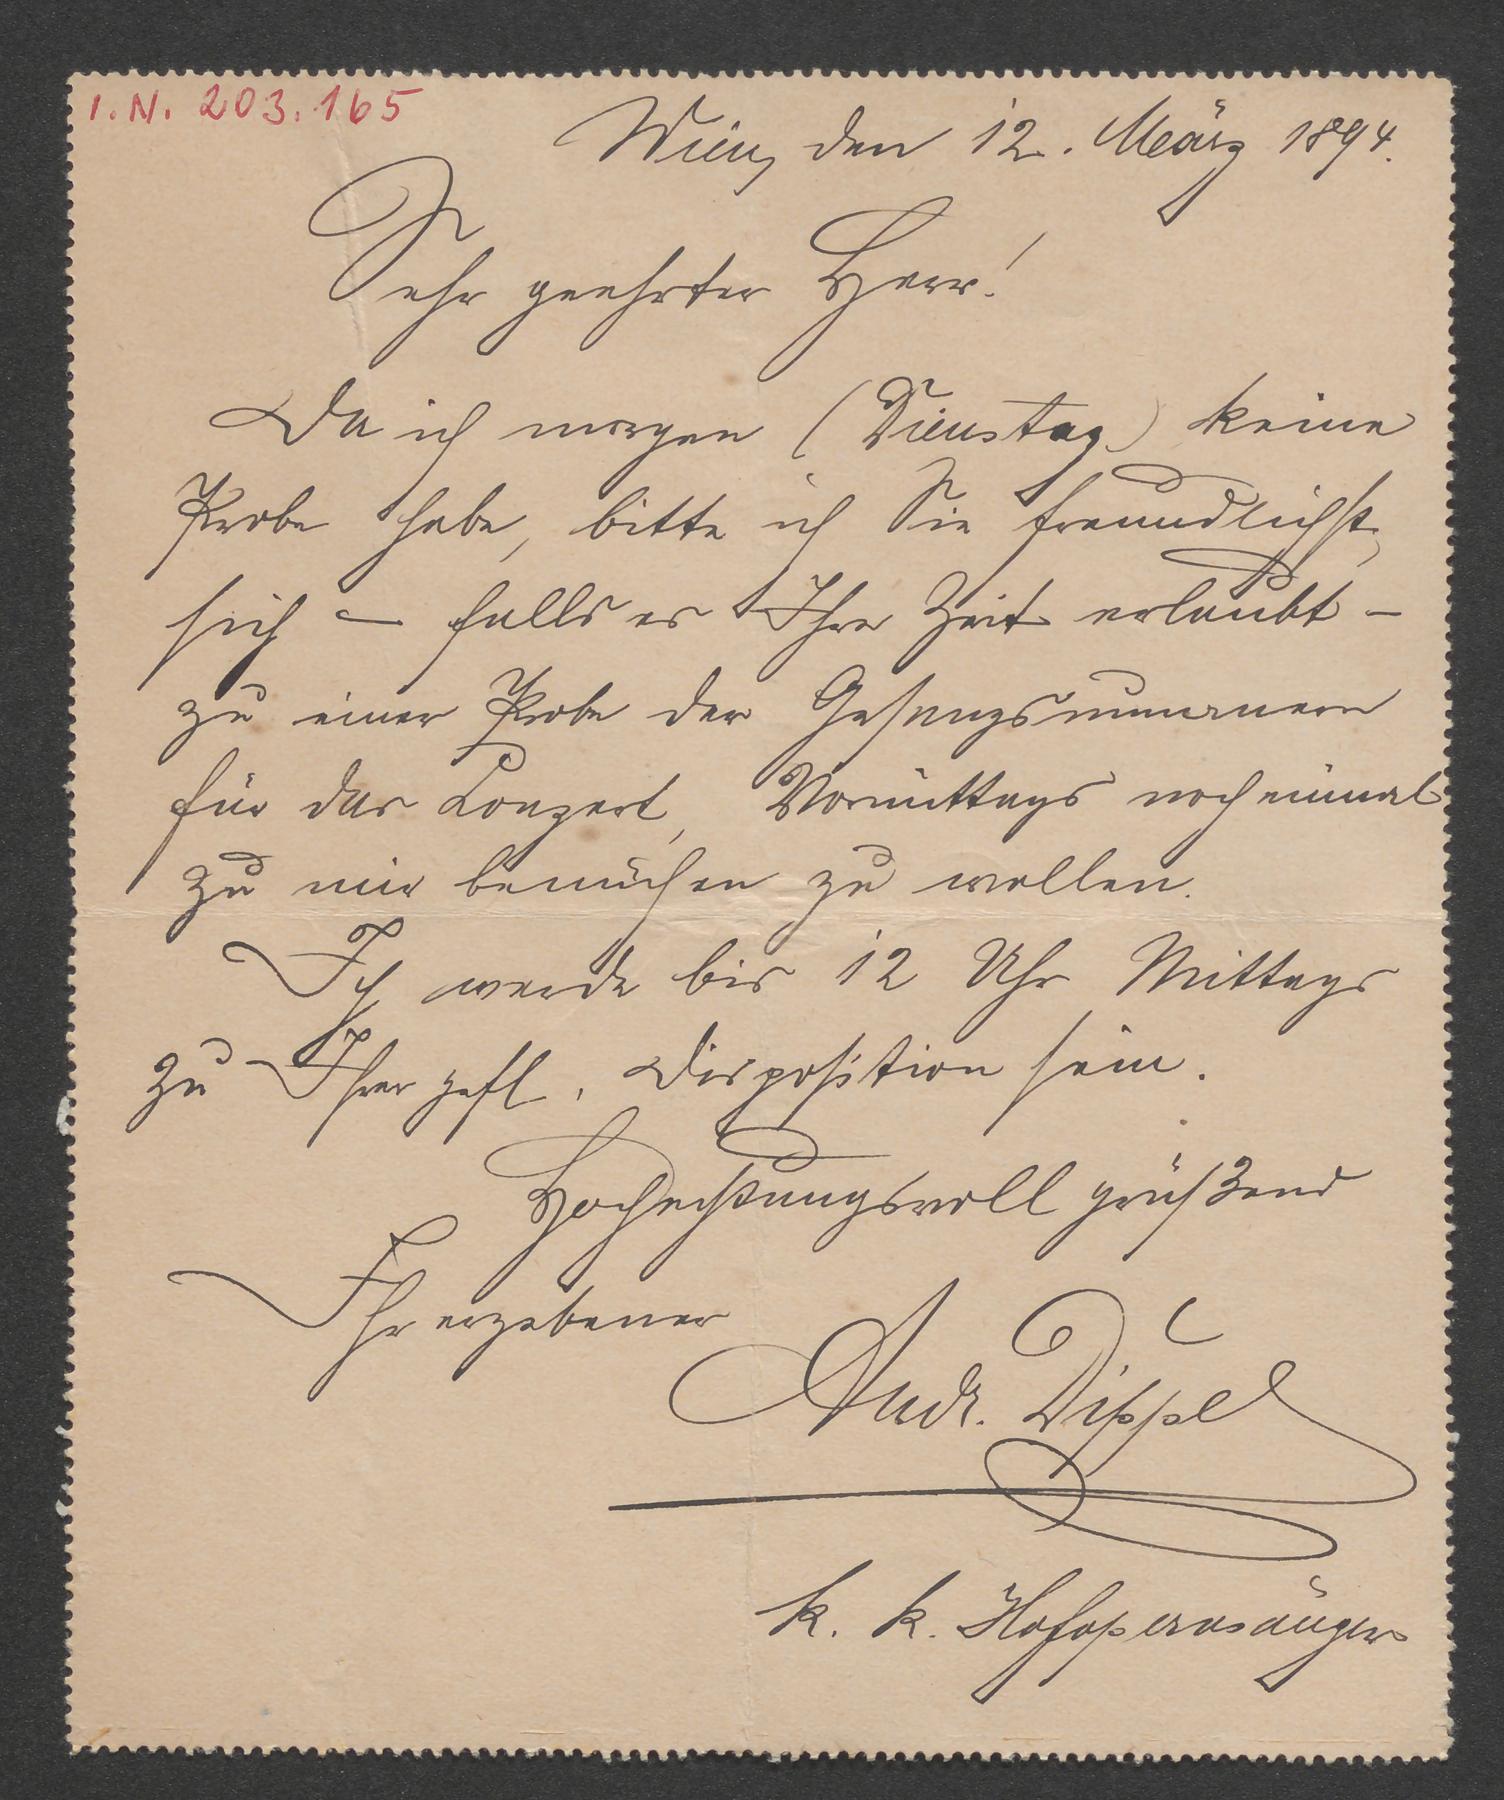 I.N. 203.165
Wien, den 12. März 1894.
Sehr geehrter Herr!
Da ich morgen (Dienstag) keine
Probe habe, bitte ich Sie freundlichst,
sich – falls es Ihre Zeit erlaubt –
zu einer Probe der Gesangsnummern
für das Conzert, Vormittags noch einmal
zu mir bemühen zu wollen.
Ich werde bis 12 Uhr Mittags
zu Ihrer gefl. Disposition sein.
Hochachtungsvoll grüßend
Ihr ergebener
Andr. Dippel
k. k. Hofopernsänger